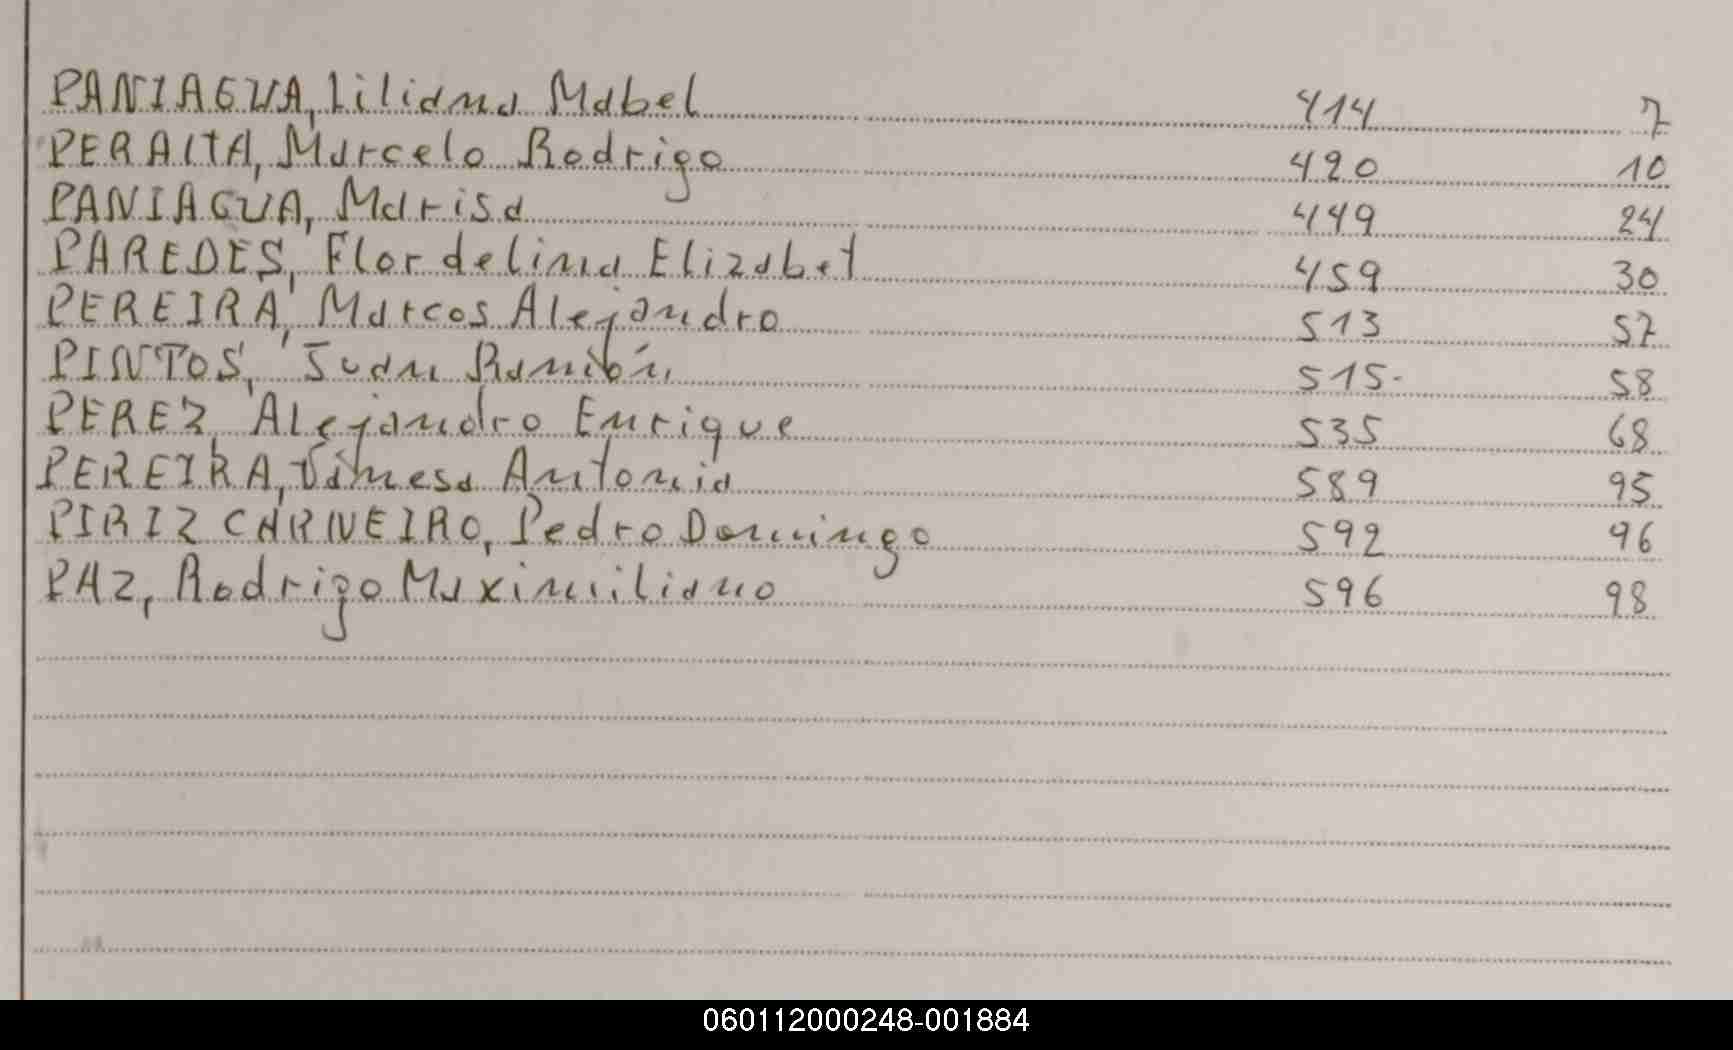 PANIAGUA, Liliana Mabel 414 7
PERALTA, Marcelo Rodrigo 420 10
PANIAGUA, Marisa 449 24
PAREDES, Flordelina Elizabet 459 30
PEREIRA, Marcos Alejandro 513 57
PINTOS, Juan Ramón 515 58
PEREZ, Alejandro Enrique 535 68
PEREIRA, Vanesa Antonia 589 95
PIRIZ CARNEIRO, Pedro Domingo 592 96
PAZ, Rodrigo Maximiliano 596 98
060112000248-001884